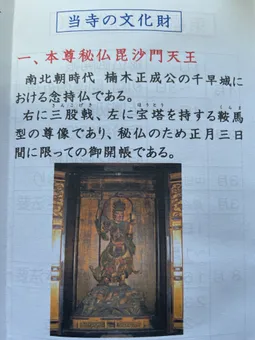 当寺の文化財
一、本尊秘仏毘沙門天王
南北朝時代 楠木正成公の千早城に
おける念持仏である。
右に三股戟、左に宝塔を持する鞍馬
型の尊像であり、秘仏のため正月三日
間に限っての御開帳である。